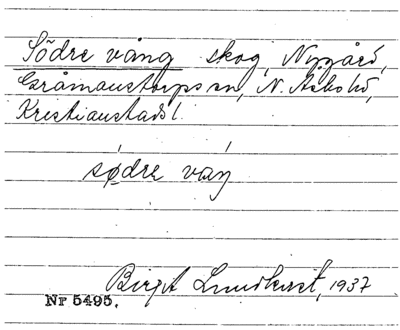 Södre vång skog, Nygård,
Gråmanstorps sn, N. Åsbohd,
Kristianstads l.
södre váŋ
Birgit Lundkvist, 1937
Nr 5495.